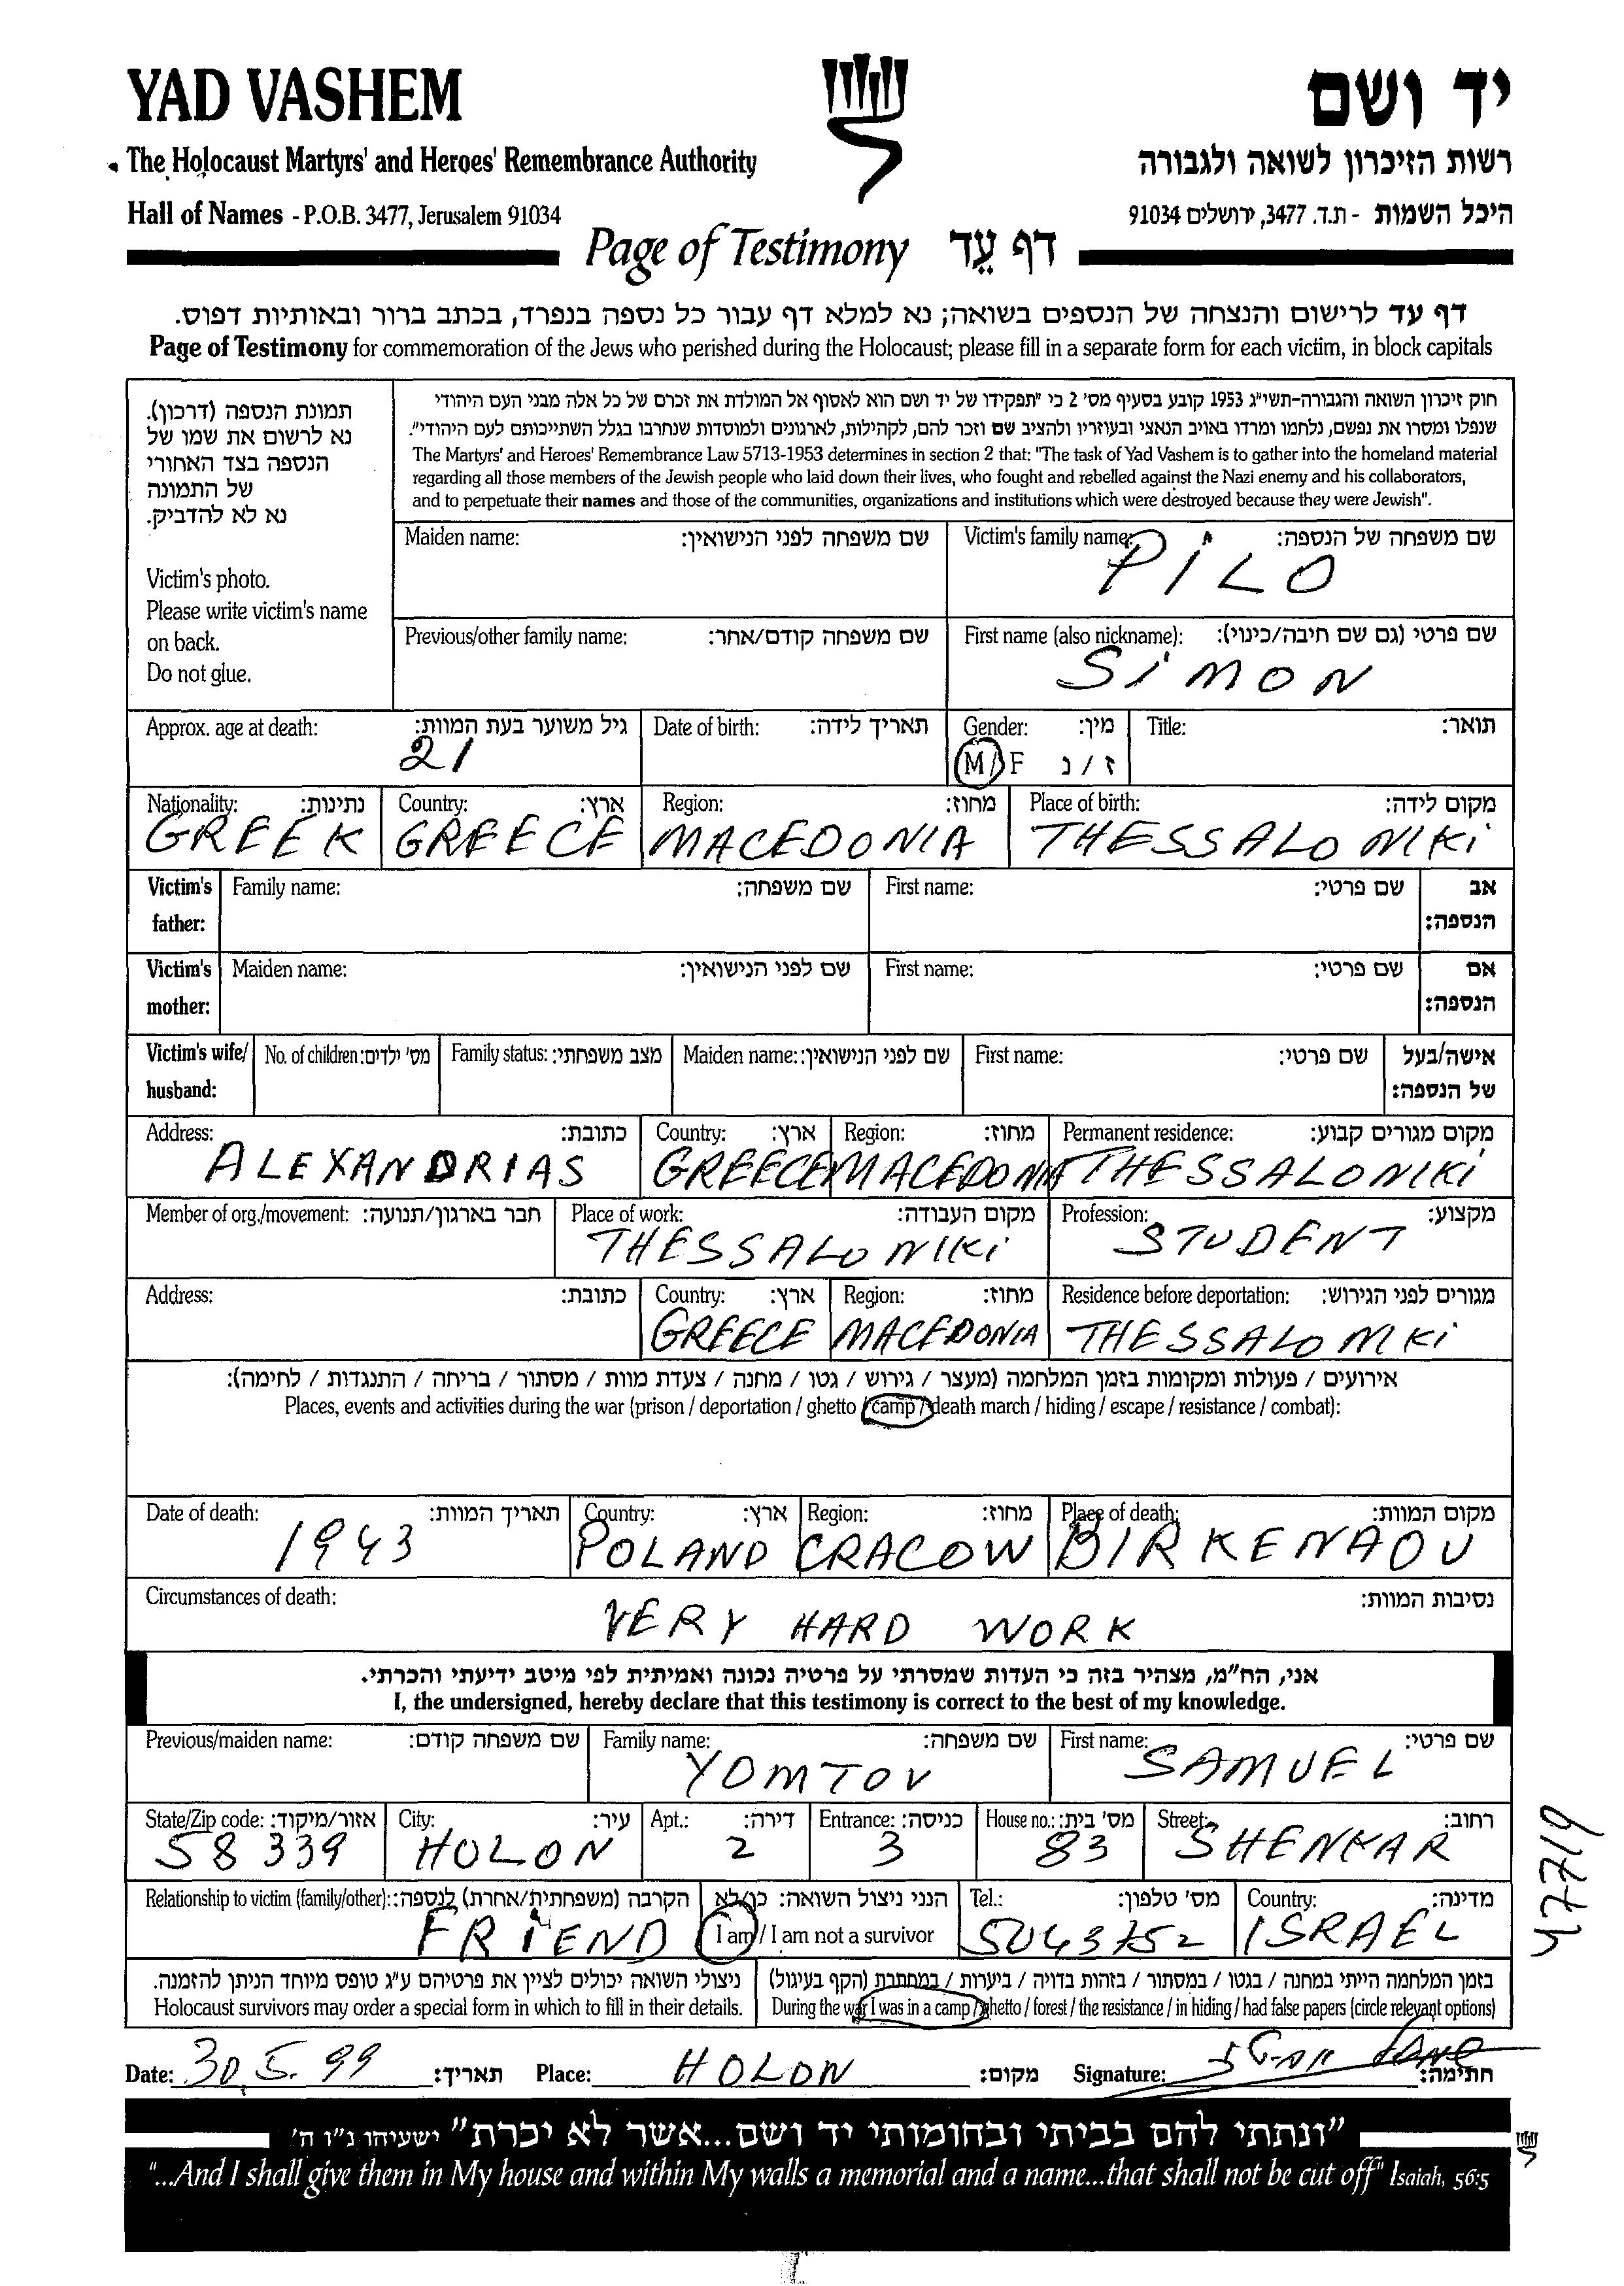 YAD VASHEM
יד ושם
The Holocaust Martyrs' and Heroes' Remembrance Authority
רשות הזיכרון לשואה ולגבורה
Hall of Names - P.O.B. 3477, Jerusalem 91034
היכל השמות - ת.ד. 3477, ירושלים 91034
Page of Testimony דף עֵד
דף עד לרישום והנצחה של הנספים בשואה; נא למלא דף עבור כל נספה בנפרד, בכתב ברור ובאותיות דפוס.
Page of Testimony for commemoration of the Jews who perished during the Holocaust; please fill in a separate form for each victim, in block capitals
תמונת הנספה (דרכון).
נא לרשום את שמו של
הנספה בצד האחורי
של התמונה
נא לא להדביק.
Victim's photo.
Please write victim's name
on back.
Do not glue.
חוק זיכרון השואה והגבורה-תשי"ג 1953 קובע בסעיף מס' 2 כי "תפקידו של יד ושם הוא לאסוף אל המולדת את זכרם של כל אלה מבני העם היהודי
שנפלו ומסרו את נפשם, נלחמו ומרדו באויב הנאצי ובעוזריו ולהציב שם וזכר להם, לקהילות, לארגונים ולמוסדות שנחרבו בגלל השתייכותם לעם היהודי".
The Martyrs' and Heroes' Remembrance Law 5713-1953 determines in section 2 that: "The task of Yad Vashem is to gather into the homeland material
regarding all those members of the Jewish people who laid down their lives, who fought and rebelled against the Nazi enemy and his collaborators,
and to perpetuate their names and those of the communities, organizations and institutions which were destroyed because they were Jewish".
Maiden name: שם משפחה לפני הנישואין:
Victim's family name: שם משפחה של הנספה:
PILO
Previous/other family name: שם משפחה קודם/אחר:
First name (also nickname): שם פרטי (גם שם חיבה/כינוי):
SIMON
Approx. age at death: גיל משוער בעת המוות:
21
Date of birth: תאריך לידה:
Gender: מין:
M/F ז/נ
Title: תואר:
Nationality: נתינות:
GREEK
Country: ארץ:
GREECE
Region: מחוז:
MACEDONIA
Place of birth: מקום לידה:
THESSALONIKI
Victim's father: Family name: שם משפחה: First name: שם פרטי: אב הנספה:
Victim's mother: Maiden name: שם לפני הנישואין: First name: שם פרטי: אם הנספה:
Victim's wife/husband: No. of children: מס' ילדים: Family status: מצב משפחתי: Maiden name: שם לפני הנישואין: First name: שם פרטי: אישה/בעל של הנספה:
Address: כתובת:
ALEXANDRIAS
Country: ארץ:
GREECE
Region: מחוז:
MACEDONIA
Permanent residence: מקום מגורים קבוע:
THESSALONIKI
Member of org./movement: חבר בארגון/תנועה:
Place of work: מקום העבודה:
THESSALONIKI
Profession: מקצוע:
STUDENT
Address: כתובת:
Country: ארץ:
GREECE
Region: מחוז:
MACEDONIA
Residence before deportation: מגורים לפני הגירוש:
THESSALONIKI
אירועים / פעולות ומקומות בזמן המלחמה (מעצר / גירוש / גטו / מחנה / צעדת מוות / מסתור / בריחה / התנגדות / לחימה):
Places, events and activities during the war (prison / deportation / ghetto / camp / death march / hiding / escape / resistance / combat):
Date of death: תאריך המוות:
1943
Country: ארץ:
POLAND
Region: מחוז:
CRACOW
Place of death: מקום המוות:
BIRKENAOU
Circumstances of death: נסיבות המוות:
VERY HARD WORK
אני, הח"מ, מצהיר בזה כי העדות שמסרתי על פרטיה נכונה ואמיתית לפי מיטב ידיעתי והכרתי.
I, the undersigned, hereby declare that this testimony is correct to the best of my knowledge.
Previous/maiden name: שם משפחה קודם:
Family name: שם משפחה:
YOMTOV
First name: שם פרטי:
SAMUEL
State/Zip code: אזור/מיקוד:
58 339
City: עיר:
HOLON
Apt.: דירה:
2
Entrance: כניסה:
3
House no.: מס' בית:
83
Street: רחוב:
SHENKAR
47719
Relationship to victim (family/other): הקרבה (משפחתית/אחרת) לנספה:
FRIEND
הנני ניצול השואה: כן/לא
I am / I am not a survivor
Tel.: מס' טלפון:
5043752
Country: מדינה:
ISRAEL
ניצולי השואה יכולים לציין את פרטיהם ע"ג טופס מיוחד הניתן להזמנה.
Holocaust survivors may order a special form in which to fill in their details.
בזמן המלחמה הייתי במחנה / בגטו / במסתור / בזהות בדויה / ביערות / במחתרת (הקף בעיגול)
During the war I was in a camp / ghetto / forest / the resistance / in hiding / had false papers (circle relevant options)
Date: 30.5.99 תאריך: Place: HOLON מקום: Signature: חתימה:
"ונתתי להם בביתי ובחומותי יד ושם...אשר לא יכרת" ישעיהו נ"ו ה'
"...And I shall give them in My house and within My walls a memorial and a name...that shall not be cut off" Isaiah, 56:5